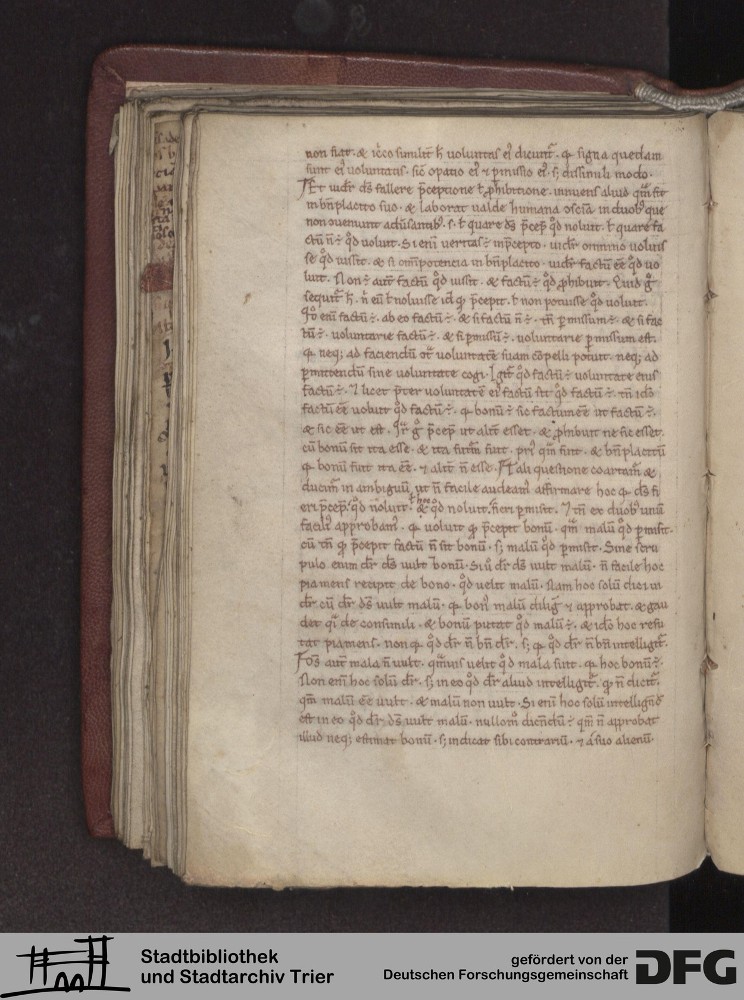 non fiat. & idcco similit̄ h̄ voluntas ei᷒ dicunt᷑. qͥ signa quedam
sunt ei᷒ voluntatis. sic̄ opatio ei᷒ ⁊ pmissio ei᷒. s; dissimili modo.
Et uidr̄ ds̄ fallere p̄ceptione ł phibitione. innuens aliud qm̄ sit
in bn̄placito suo. & laborat valde humana
non ł quare ds̄ p̄cep̄ qd noluit. ł quare fa
ctū n̄ ÷ qd voluit. Si enī veritas ÷ in p̄cepto. uidr̄ omnino voluis
se qd iussit. & si omīpotencia in bn̄placito. uidr̄ factū eē̄ qd uo
luit. Non ÷ aut̄ factū qd iussit. & factū ÷ qd phibuit. Quid g̊
sequit᷑ h̄. n̄ eū ł noluisse id qd p̄cepit. ł non potuisse qd voluit.
enī factū ÷. ab eo factū ÷. & si factū n̄ ÷. tn̄ pmissum ÷. & si fac
tū ÷. voluntarie factū ÷. & si pmissū ÷. voluntarie pmissum est.
qͥ neq; ad faciendū voluntatē suam cōpelli potuit. neq; ad
pmittendū sine voluntate cogi. Igit᷑ qd factū ÷ voluntate eius
factū ÷. ⁊ licet p̄ter voluntatē ei᷒ factū sit qd factū ÷. tn̄ idō
factū eē voluit qd factū ÷. qͥ bonū ÷ sic factum eē ut factū ÷.
& sic eē ut est. g̊ p̄cep̄ ut alit̄ esset. & phibuit ne sic esset.
cū bonū sit ita esse. & ita futurū fuit. pri᷒ qm̄ fiat. & bn̄placitū
qͥ bonū fuit ita eē. ⁊ alit̄ n̄ esse. Tali questione coartam᷒ &
ducim᷒ in ambiguū. ut n̄ facile audeam᷒ affirmare hoc qͥ ds̄ fi
eri p̄cep̄. qd noluit. ł hoc & qd noluit. fieri pmisit. ⁊ tn̄ ex duob᷒ unū
facili᷒ approbam᷒. qͥ voluit qd p̄cepit bonū. qm̄ malū qd pmisit.
cū tn̄ qd p̄cepit factū n̄ sit bonū. s; malū qd pmisit. Sine scru
pulo enim dr̄ ds̄ vult bonū. Si ů dr̄ ds̄ vult malū. n̄ facile hoc
pia mens recipit de bono. qd velit malū. Nam hoc solū dici ui
dr̄ cū dr̄ ds̄ vult malū. qͥ bon᷒ malū dilig̊ ⁊ approbat. & gau
det qͥ de consimili. & bonū putat qd malū ÷. & idō hoc refu
tat pia mens. non qͥ qd dr̄ n̄ bn̄ dr̄. s; qͥ qd dr̄ n̄ bn̄ intelligit᷑.
Ds̄ aut̄ mala n̄ vult. qm̄uis velit qd mala sint. qͥ hoc bonū ÷.
Non enī hoc solū dr̄. s; in eo qd dr̄ aliud intelligit᷑. qd n̄ dicit᷑.
qm̄ malū eē vult. & malū non vult. Si enī hoc solū intelligend̄
est in eo qd dr̄ ds̄ vult malū. nullom᷒ dicendū ÷ qm̄ n̄ approbat
illud neq; estimat bonū. s; indicat sibi contrariū. ⁊ a suo alienū.
Stadtbibliothek
und Stadtarchiv Trier
gefördert von der
Deutschen Forschungsgemeinschaft
DFG